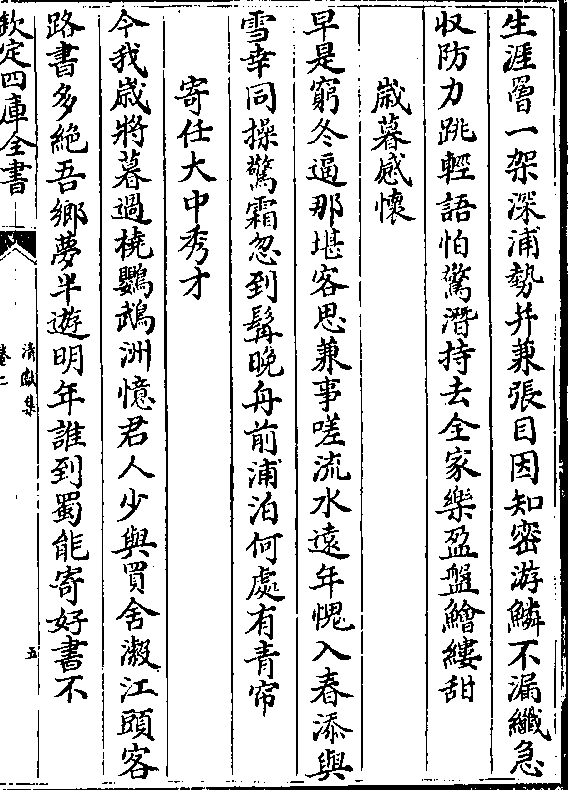 生涯罾一架深浦勢并兼張目因知密游鱗不漏纖急
収防力跳輕語怕驚潛持去全家樂盈盤鱠縷甜
歳暮感懷
早是窮冬逼那堪客思兼事嗟流水遠年愧入春添與
雪幸同操驚霜忽到髯晚舟前浦泊何處有青帘
寄任大中秀才
今我歳將暮過橈鸚鵡洲憶君人少與買舍溆江頭客
路書多絶吾鄉夢半遊明年誰到蜀能寄好書不
欽定四庫全書
清獻集
卷二
五